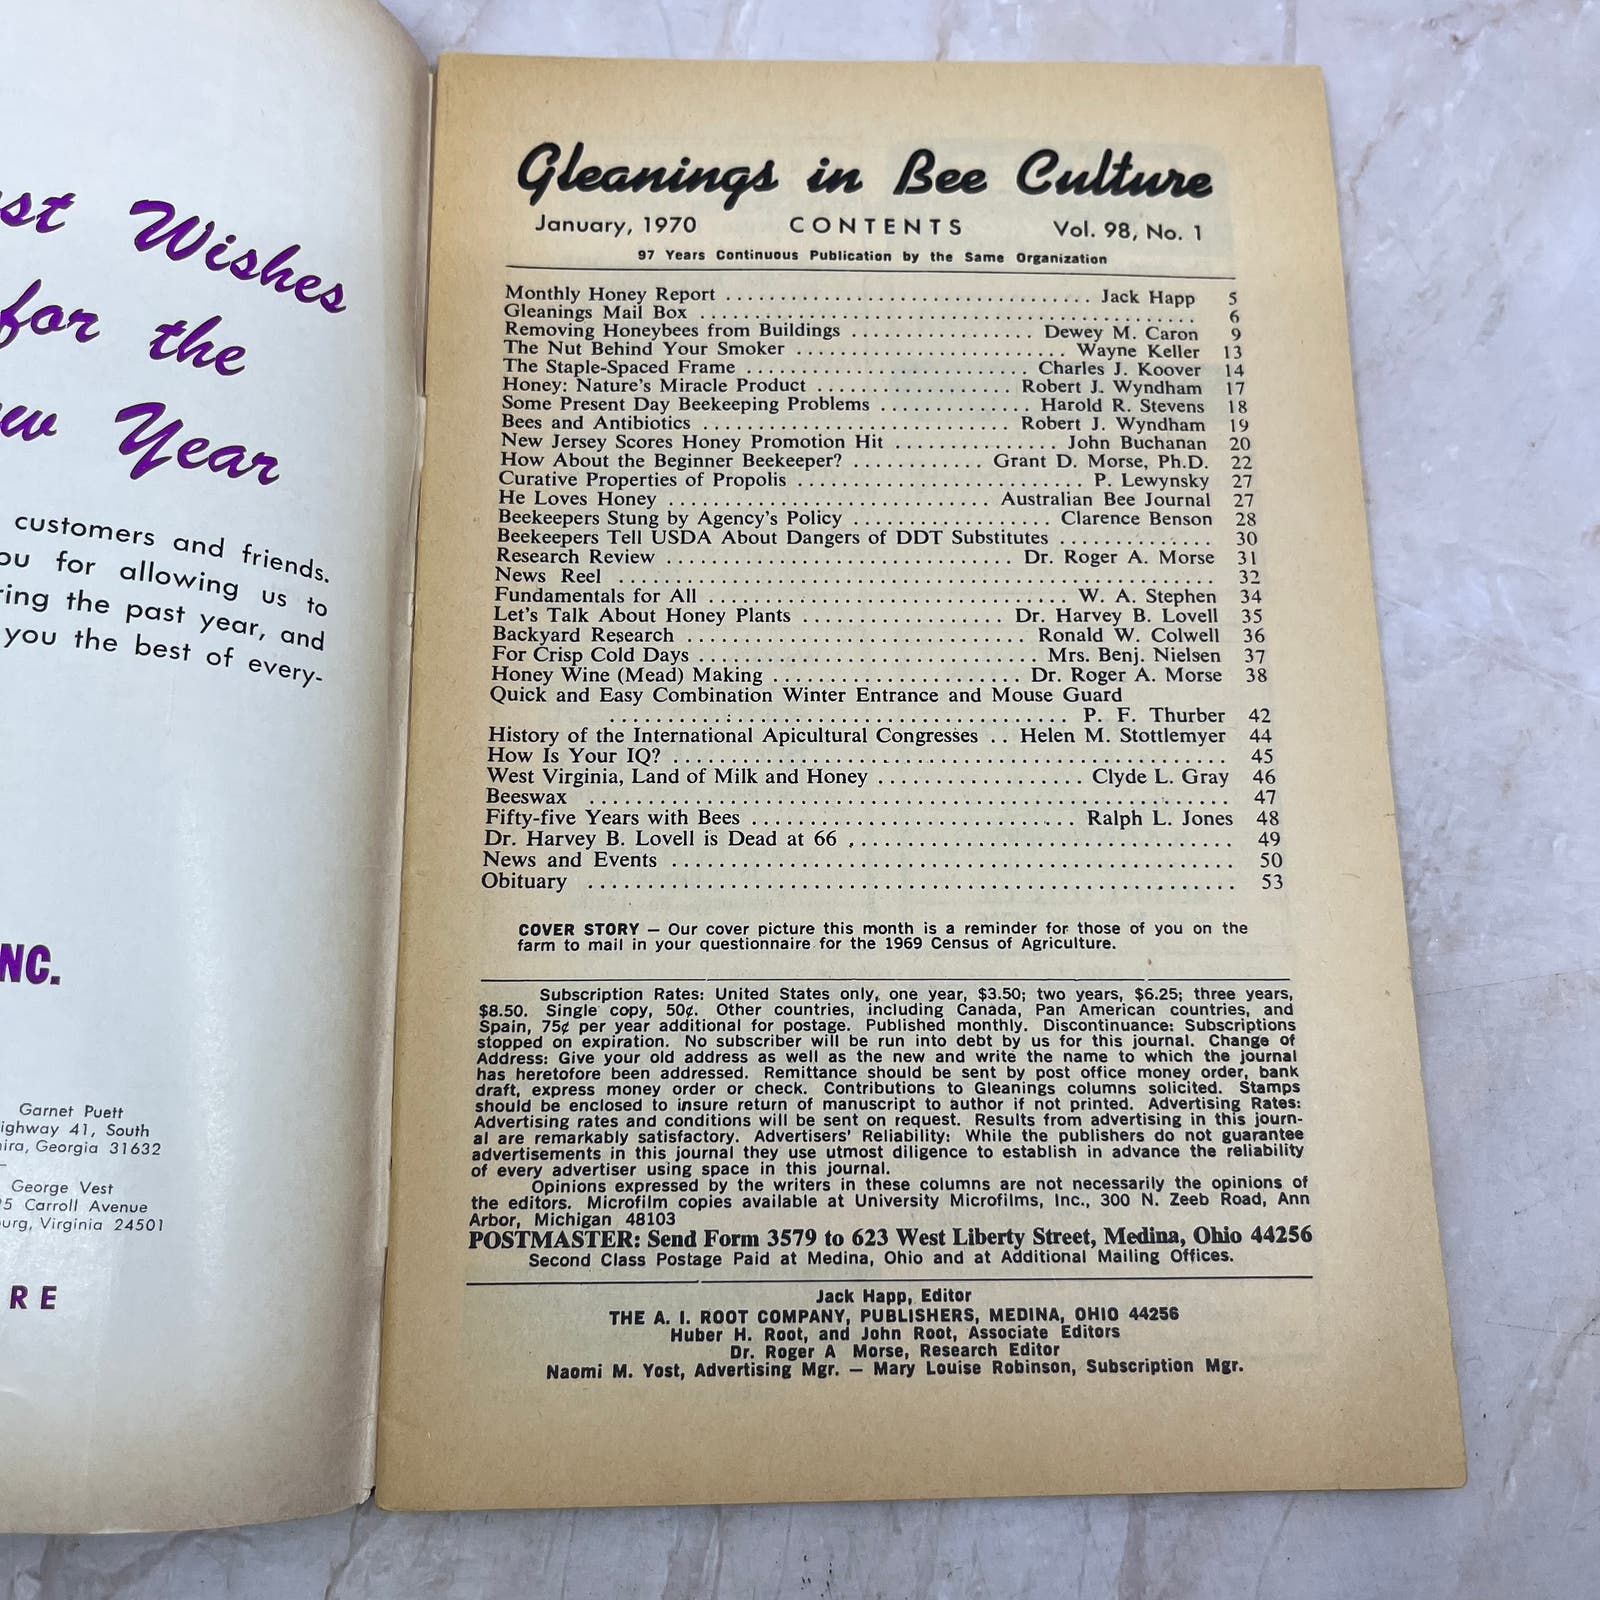 Wishes
for the
Year
customers and friends.
for allowing us to
the past year, and
you the best of every-
NC.
Garnet Puett
Highway 41, South
Georgia 31632
George Vest
Carroll Avenue
Virginia 24501
RE
Gleanings in Bee Culture
January, 1970 CONTENTS Vol. 98, No. 1
97 Years Continuous Publication by the Same Organization
Monthly Honey Report .......... Jack Happ 5
Gleanings Mail Box .......... 6
Removing Honeybees from Buildings .......... Dewey M. Caron 9
The Nut Behind Your Smoker .......... Wayne Keller 13
The Staple-Spaced Frame .......... Charles J. Koover 14
Honey: Nature's Miracle Product .......... Robert J. Wyndham 17
Some Present Day Beekeeping Problems .......... Harold R. Stevens 18
Bees and Antibiotics .......... Robert J. Wyndham 19
New Jersey Scores Honey Promotion Hit .......... John Buchanan 20
How About the Beginner Beekeeper? .......... Grant D. Morse, Ph.D. 22
Curative Properties of Propolis .......... P. Lewynsky 27
He Loves Honey .......... Australian Bee Journal 27
Beekeepers Stung by Agency's Policy .......... Clarence Benson 28
Beekeepers Tell USDA About Dangers of DDT Substitutes .......... 30
Research Review .......... Dr. Roger A. Morse 31
News Reel .......... 32
Fundamentals for All .......... W. A. Stephen 34
Let's Talk About Honey Plants .......... Dr. Harvey B. Lovell 35
Backyard Research .......... Ronald W. Colwell 36
For Crisp Cold Days .......... Mrs. Benj. Nielsen 37
Honey Wine (Mead) Making .......... Dr. Roger A. Morse 38
Quick and Easy Combination Winter Entrance and Mouse Guard
.......... P. F. Thurber 42
History of the International Apicultural Congresses .. Helen M. Stottlemyer 44
How Is Your IQ? .......... 45
West Virginia, Land of Milk and Honey .......... Clyde L. Gray 46
Beeswax .......... 47
Fifty-five Years with Bees .......... Ralph L. Jones 48
Dr. Harvey B. Lovell is Dead at 66 .......... 49
News and Events .......... 50
Obituary .......... 53
COVER STORY — Our cover picture this month is a reminder for those of you on the
farm to mail in your questionnaire for the 1969 Census of Agriculture.
Subscription Rates: United States only, one year, $3.50; two years, $6.25; three years,
$8.50. Single copy, 50¢. Other countries, including Canada, Pan American countries, and
Spain, 75¢ per year additional for postage. Published monthly. Discontinuance: Subscriptions
stopped on expiration. No subscriber will be run into debt by us for this journal. Change of
Address: Give your old address as well as the new and write the name to which the journal
has heretofore been addressed. Remittance should be sent by post office money order, bank
draft, express money order or check. Contributions to Gleanings columns solicited. Stamps
should be enclosed to insure return of manuscript to author if not printed. Advertising Rates:
Advertising rates and conditions will be sent on request. Results from advertising in this journ-
al are remarkably satisfactory. Advertisers' Reliability: While the publishers do not guarantee
advertisements in this journal they use utmost diligence to establish in advance the reliability
of every advertiser using space in this journal.
Opinions expressed by the writers in these columns are not necessarily the opinions of
the editors. Microfilm copies available at University Microfilms, Inc., 300 N. Zeeb Road, Ann
Arbor, Michigan 48103
POSTMASTER: Send Form 3579 to 623 West Liberty Street, Medina, Ohio 44256
Second Class Postage Paid at Medina, Ohio and at Additional Mailing Offices.
Jack Happ, Editor
THE A. I. ROOT COMPANY, PUBLISHERS, MEDINA, OHIO 44256
Huber H. Root, and John Root, Associate Editors
Dr. Roger A Morse, Research Editor
Naomi M. Yost, Advertising Mgr. — Mary Louise Robinson, Subscription Mgr.